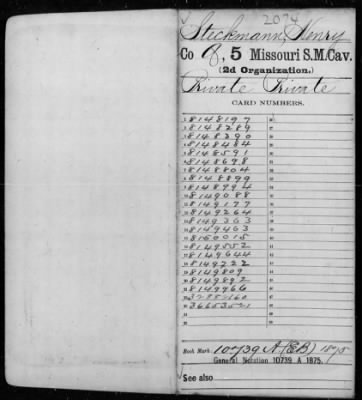 2074
Steckmann, Henry
Co G, 5 Missouri S.M.Cav.
(2d Organization.)
Private Private
CARD NUMBERS.
1 8148197
2 8148289
3 8148390
4 8148484
5 8148591
6 8148698
7 8148804
8 8148899
9 8148994
10 8149088
11 8149177
12 8149264
13 8149363
14 8149463
15 8150015
16 8149552
17 8149644
18 8149722
19 8149809
20 8149892
21 8149966
22 32954160
23 36653521
Book Mark: 10739 A (EB) 1875
General Notation 10739 A 1875.
See also